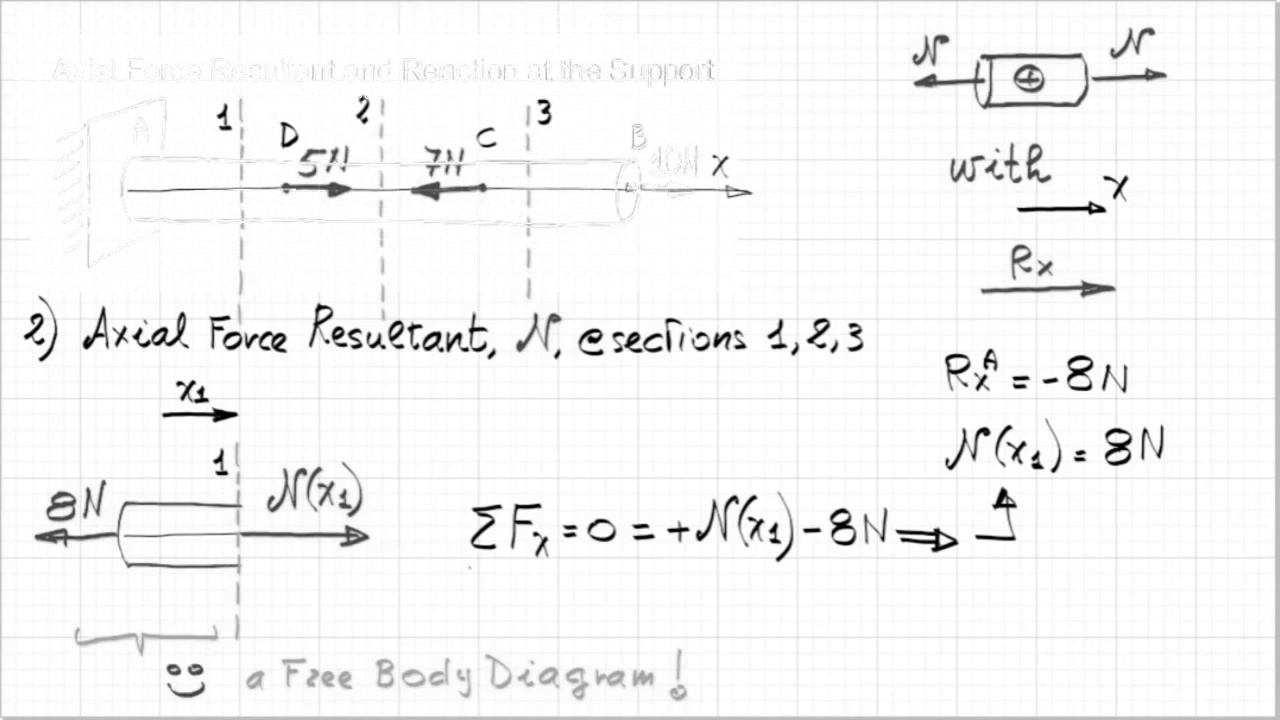 Axial Force Resultant and Reaction at the Support
1 2 3
A D 5N 7N C B 10N x
N + N
with
x
Rx
2) Axial Force Resultant, N, @sections 1,2,3
x1
RxA = -8N
N(x1) = 8N
1
8N N(x1)
ΣFx = 0 = +N(x1) - 8N ⇒
a Free Body Diagram!